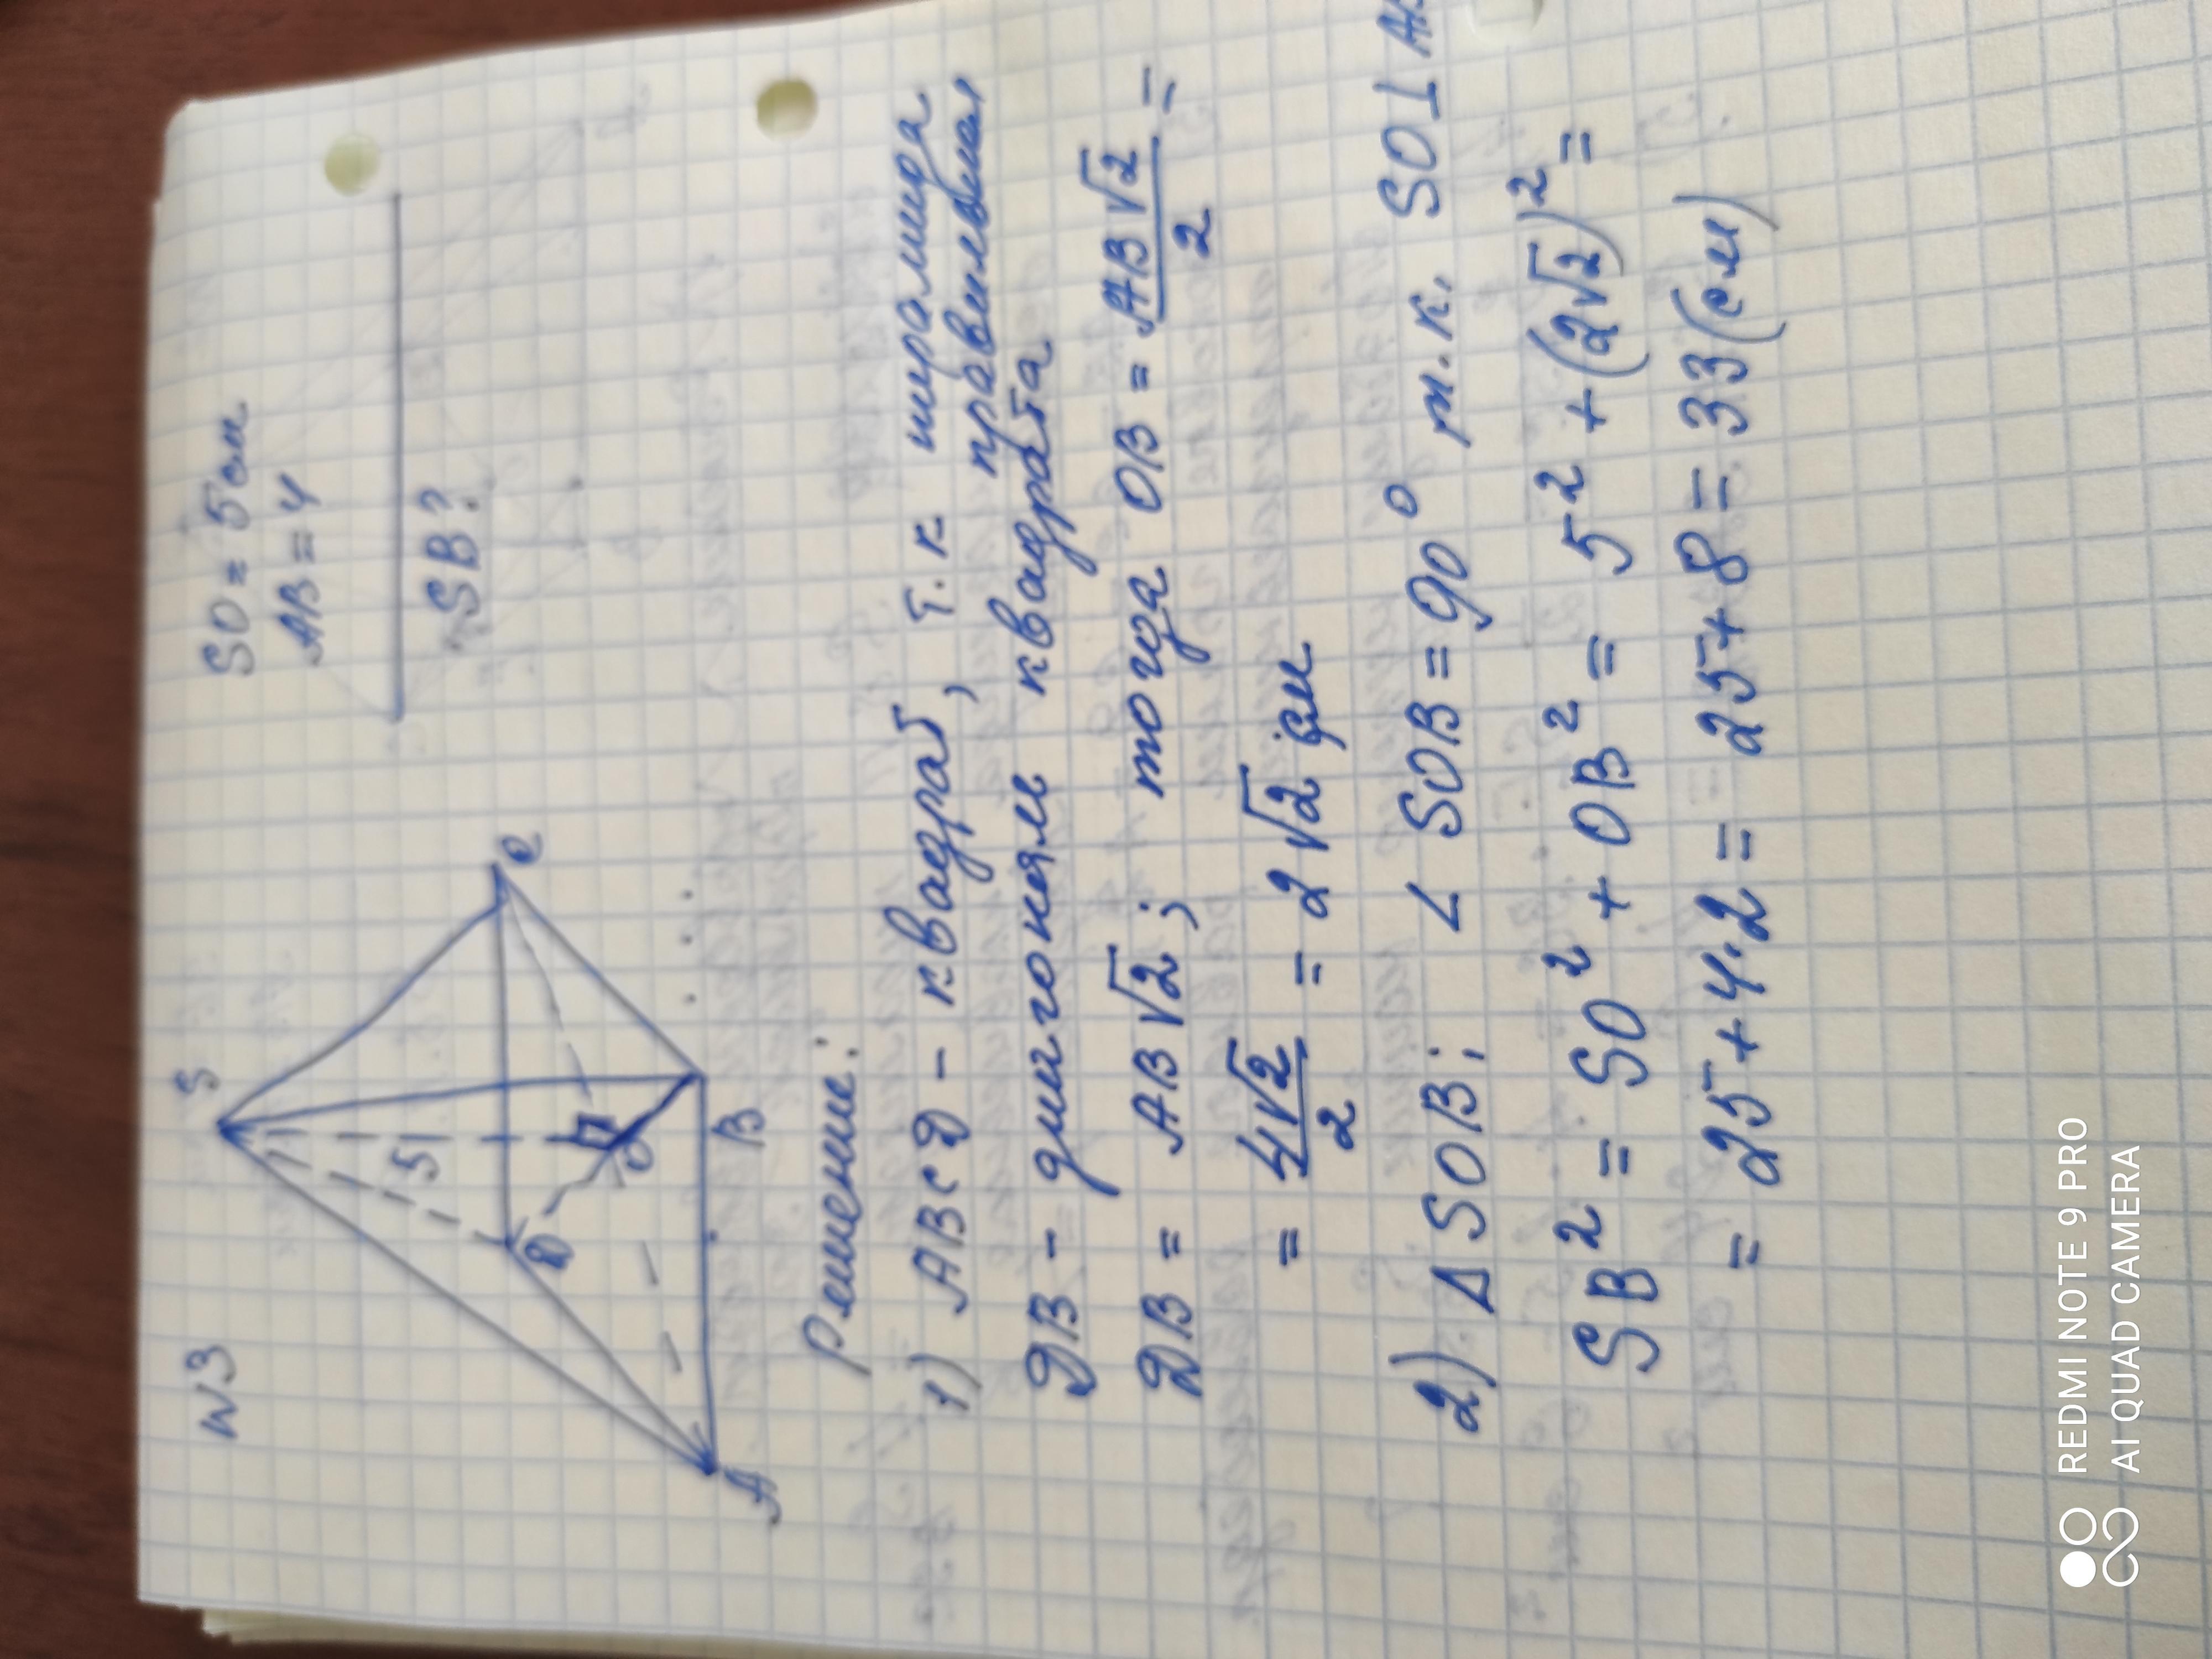 N3
S
5
D
O
C
A
B
SO = 5 см
AB = 4
SB?
Решение:
1) ABCD - квадрат, т.к пирамида правильная
DB - диагональ квадрата
DB = AB√2; тогда OB = AB√2/2 =
= 4√2/2 = 2√2 см
2). Δ SOB; ∠ SOB = 90° т.к. SO⊥
SB² = SO² + OB² = 5² + (2√2)² =
= 25 + 4·2 = 25 + 8 = 33 (см)
REDMI NOTE 9 PRO
AI QUAD CAMERA